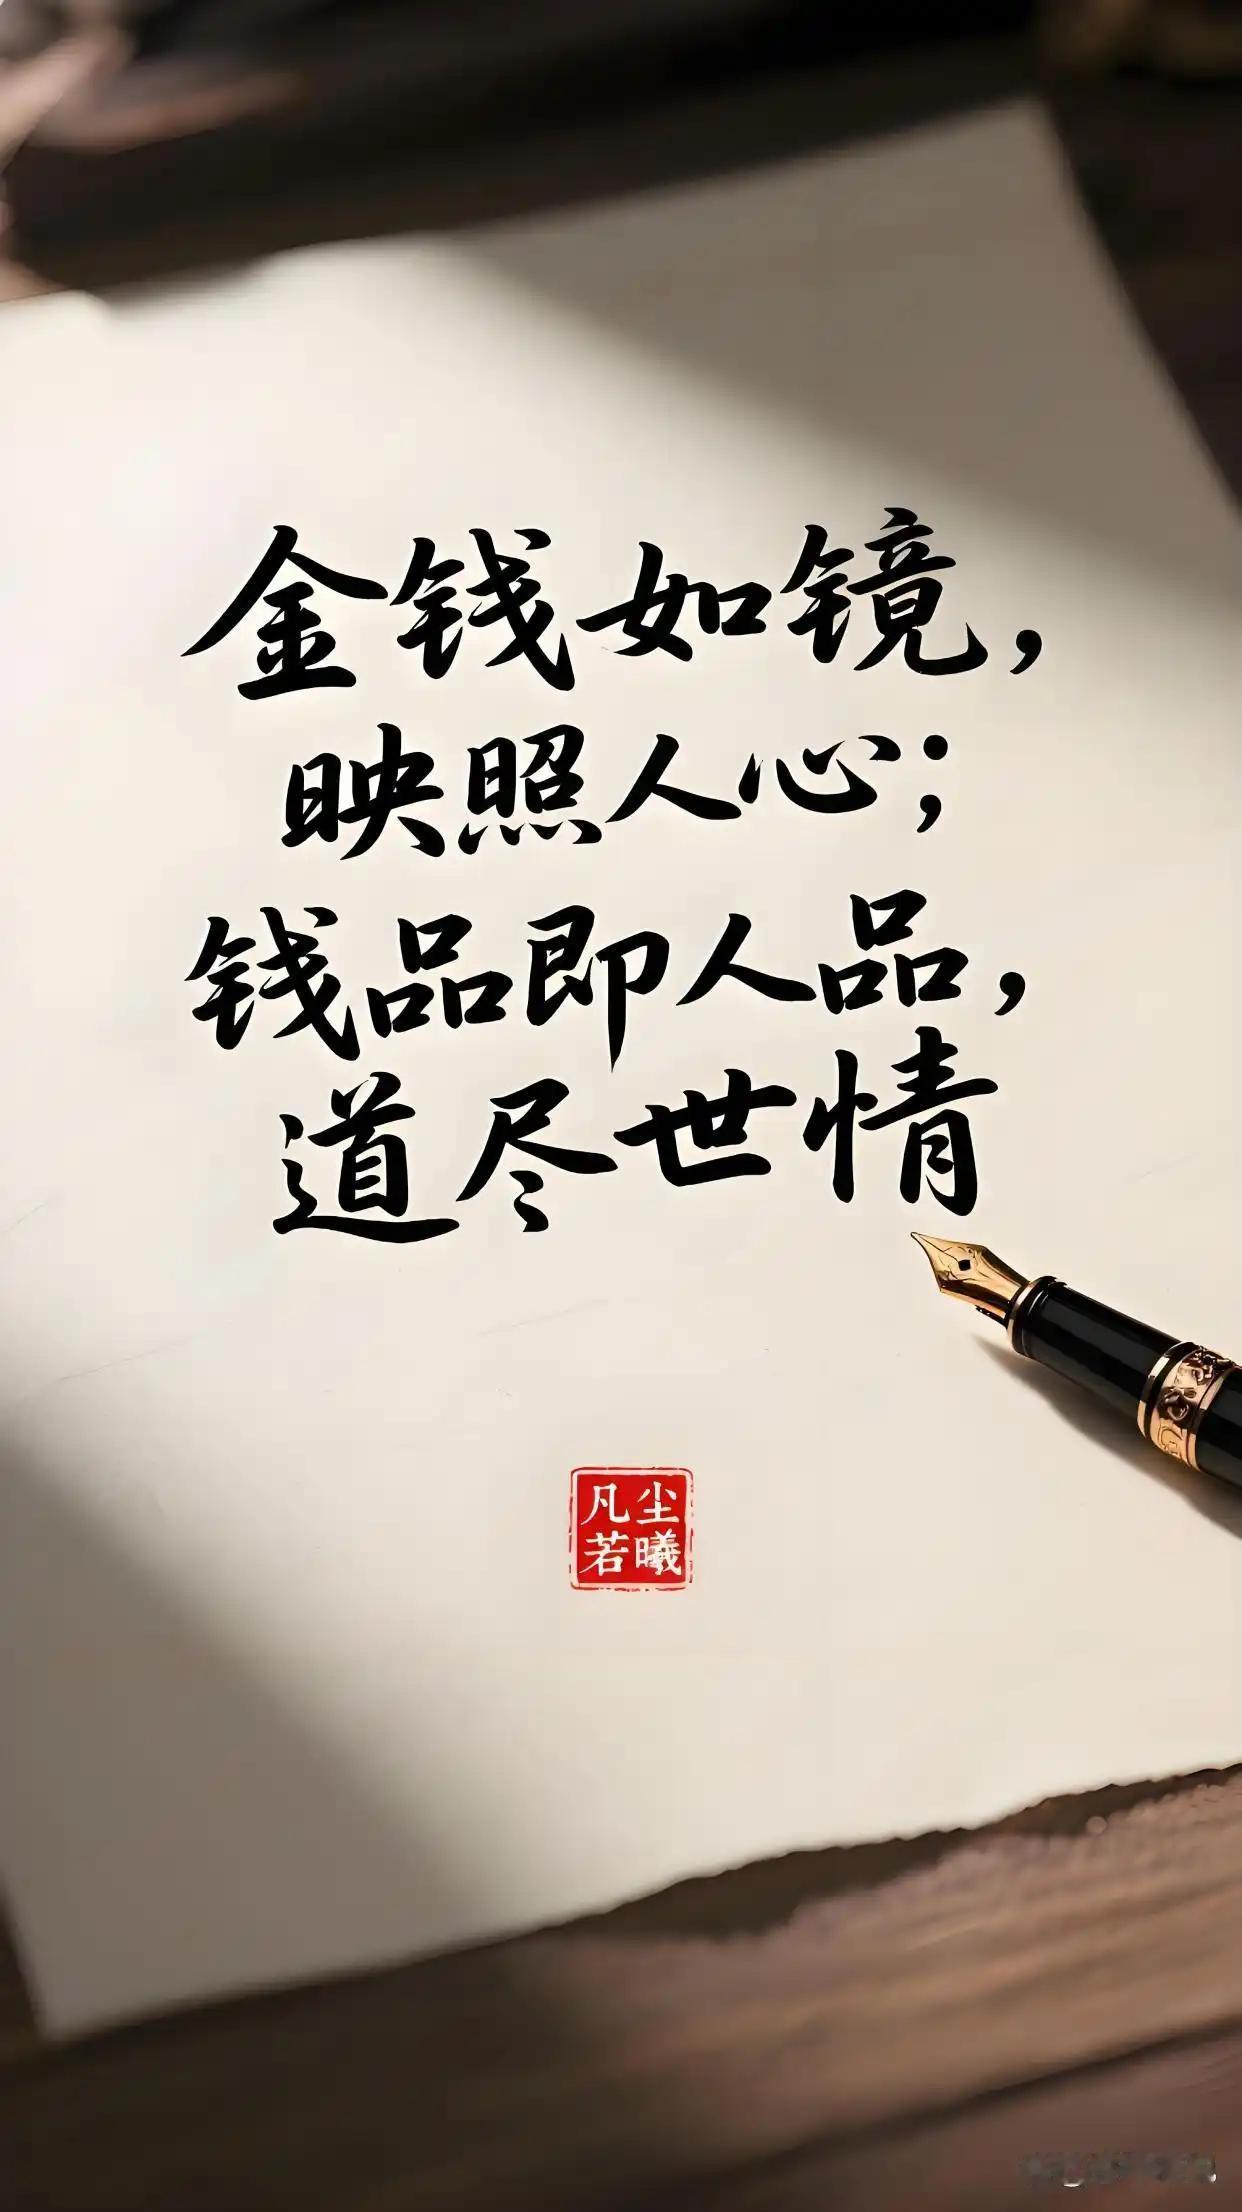 金钱如镜，
映照人心；
钱品即人品，
道尽世情
凡尘
若曦